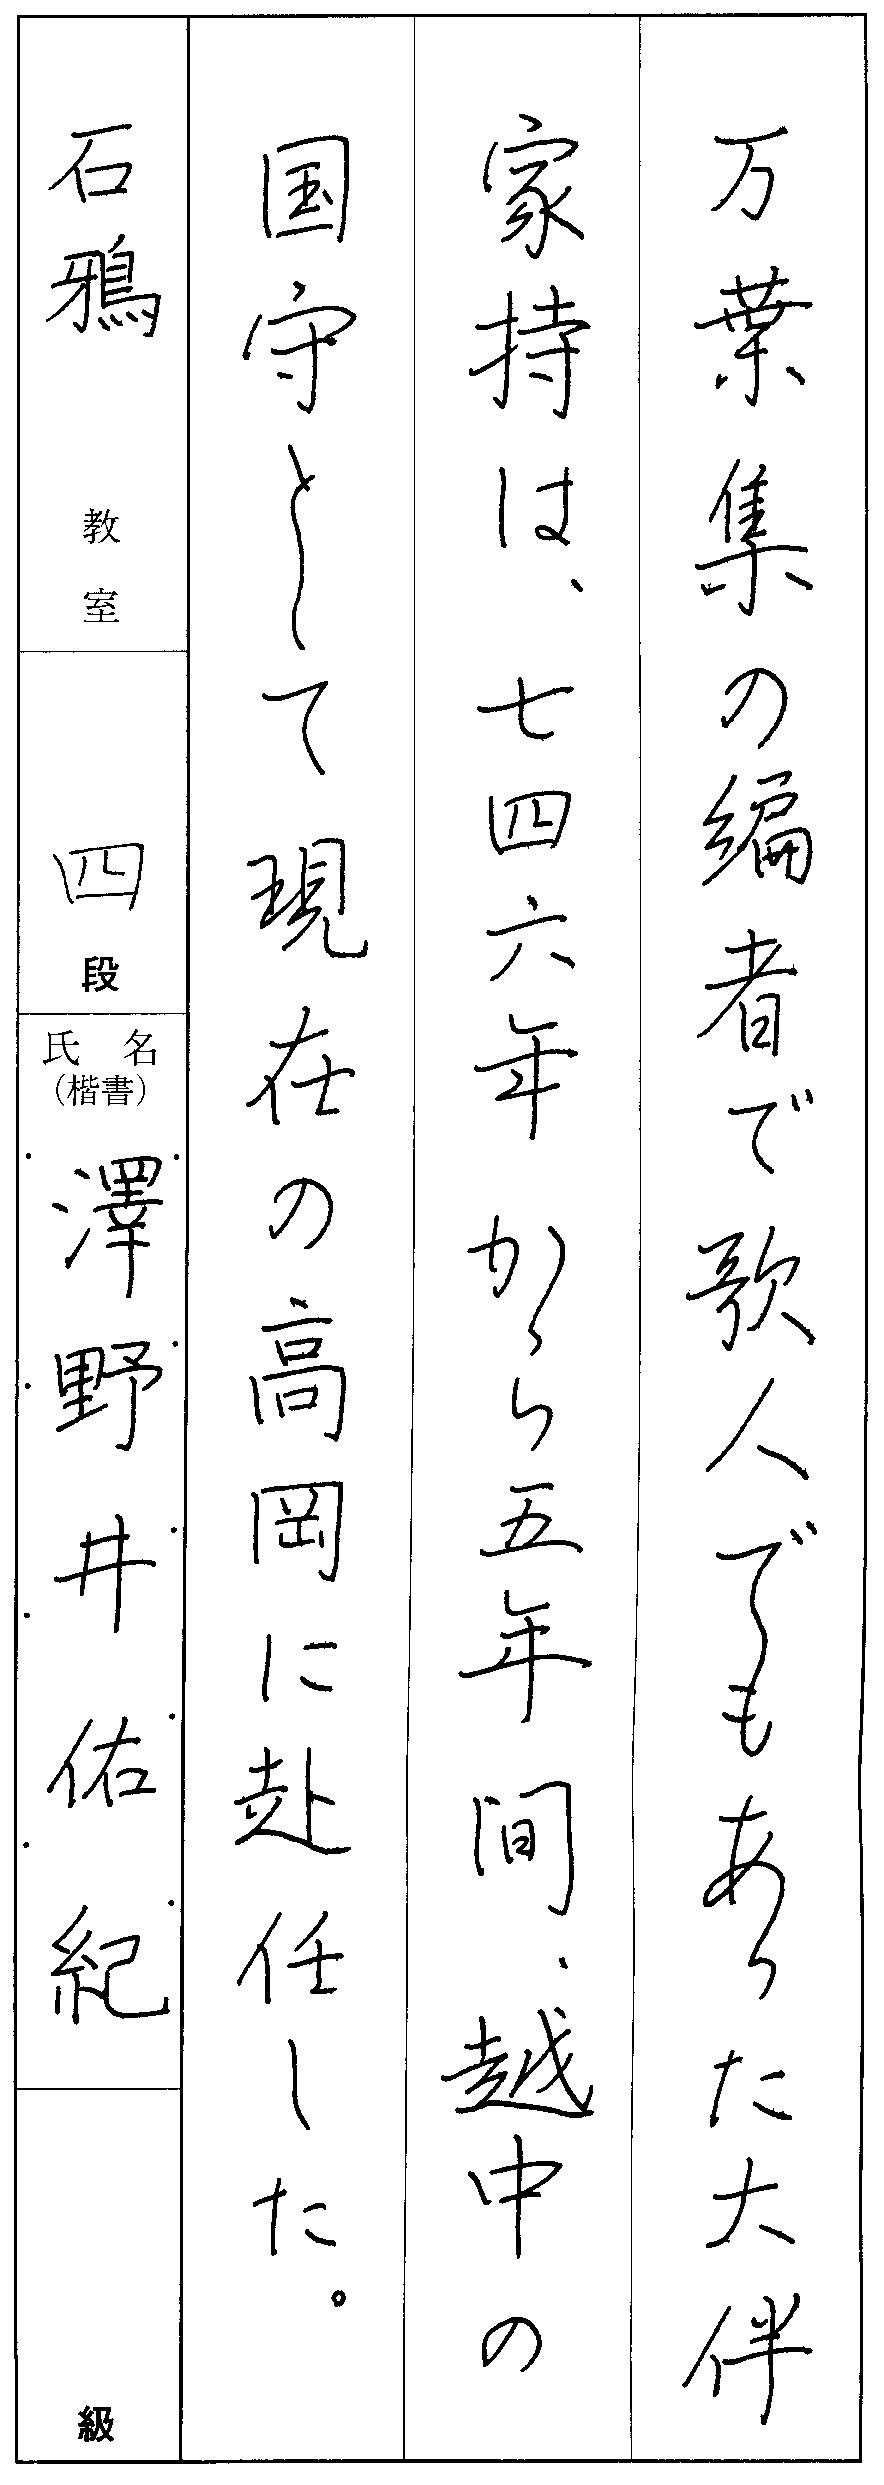 万葉集の編者で歌人でもあった大伴
家持は、七四六年から五年間、越中の
国守として現在の高岡に赴任した。
石鴉 教室
四 段
氏名
(楷書)
澤野井佑紀
級